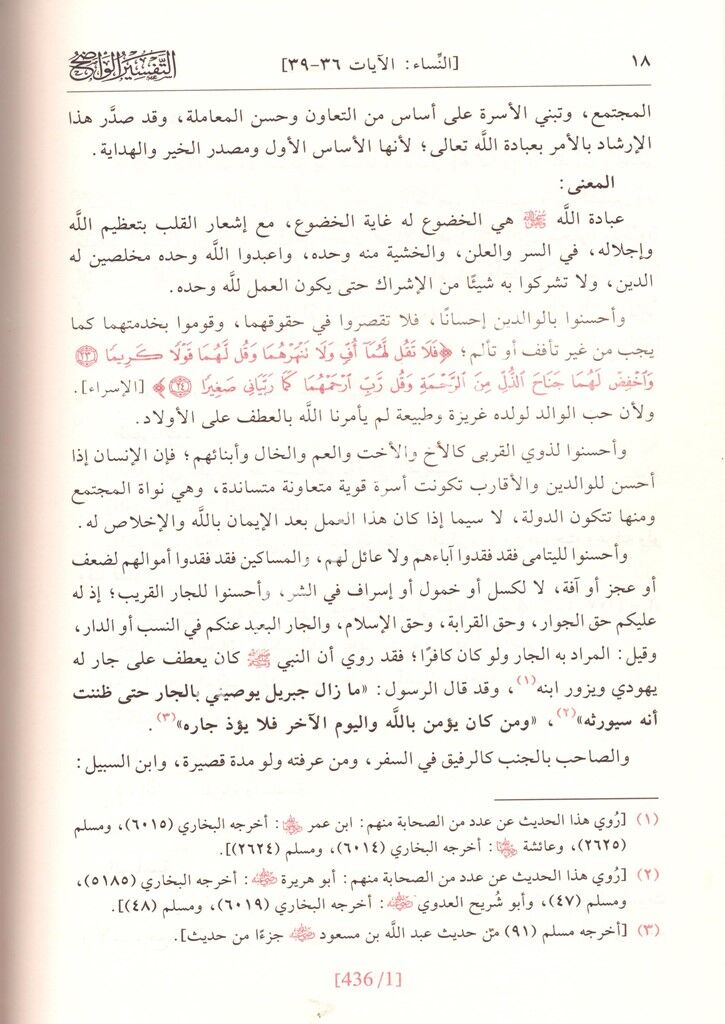 ١٨ [النِّساء: الآيات ٣٦-٣٩] التَّفْسِيرُ الوَاضِحُ
المجتمع، وتبني الأسرة على أساس من التعاون وحسن المعاملة، وقد صدَّر هذا
الإرشاد بالأمر بعبادة اللَّه تعالى؛ لأنها الأساس الأول ومصدر الخير والهداية.
المعنى:
عبادة اللَّه ﷻ هي الخضوع له غاية الخضوع، مع إشعار القلب بتعظيم اللَّه
وإجلاله، في السر والعلن، والخشية منه وحده، واعبدوا اللَّه وحده مخلصين له
الدين، ولا تشركوا به شيئًا من الإشراك حتى يكون العمل للَّه وحده.
وأحسنوا بالوالدين إحسانًا، فلا تقصروا في حقوقهما، وقوموا بخدمتهما كما
يجب من غير تأفف أو تألم؛ ﴿فَلَا تَقُل لَّهُمَآ أُفٍّ وَلَا نَنْهَرْهُمَا وَقُل لَّهُمَا قَوْلًا كَرِيمًا ٢٣
وَٱخْفِضْ لَهُمَا جَنَاحَ ٱلذُّلِّ مِنَ ٱلرَّحْمَةِ وَقُل رَّبِّ ٱرْحَمْهُمَا كَمَا رَبَّيَانِي صَغِيرًا ٢٤﴾ [الإسراء].
ولأن حب الوالد لولده غريزة وطبيعة لم يأمرنا اللَّه بالعطف على الأولاد.
وأحسنوا لذوي القربى كالأخ والأخت والعم والخال وأبنائهم؛ فإن الإنسان إذا
أحسن للوالدين والأقارب تكونت أسرة قوية متعاونة متساندة، وهي نواة المجتمع
ومنها تتكون الدولة، لا سيما إذا كان هذا العمل بعد الإيمان باللَّه والإخلاص له.
وأحسنوا لليتامى فقد فقدوا آباءهم ولا عائل لهم، والمساكين فقد فقدوا أموالهم لضعف
أو عجز أو آفة، لا لكسل أو خمول أو إسراف في الشر، وأحسنوا للجار القريب؛ إذ له
عليكم حق الجوار، وحق القرابة، وحق الإسلام، والجار البعيد عنكم في النسب أو الدار،
وقيل: المراد به الجار ولو كان كافرًا؛ فقد روي أن النبي ﷺ كان يعطف على جار له
يهودي ويزور ابنه(١)، وقد قال الرسول: «ما زال جبريل يوصيني بالجار حتى ظننت
أنه سيورثه»(٢)، «ومن كان يؤمن باللَّه واليوم الآخر فلا يؤذ جاره»(٣).
والصاحب بالجنب كالرفيق في السفر، ومن عرفته ولو مدة قصيرة، وابن السبيل:
(١) [رُوي هذا الحديث عن عدد من الصحابة منهم: ابن عمر: أخرجه البخاري (٦٠١٥)، ومسلم
(٢٦٢٥)، وعائشة: أخرجه البخاري (٦٠١٤)، ومسلم (٢٦٢٤)].
(٢) [رُوي هذا الحديث عن عدد من الصحابة منهم: أبو هريرة: أخرجه البخاري (٥١٨٥)،
ومسلم (٤٧)، وأبو شُريح العدوي: أخرجه البخاري (٦٠١٩)، ومسلم (٤٨)].
(٣) [أخرجه مسلم (٩١) من حديث عبد اللَّه بن مسعود جزءًا من حديث].
[436/1]